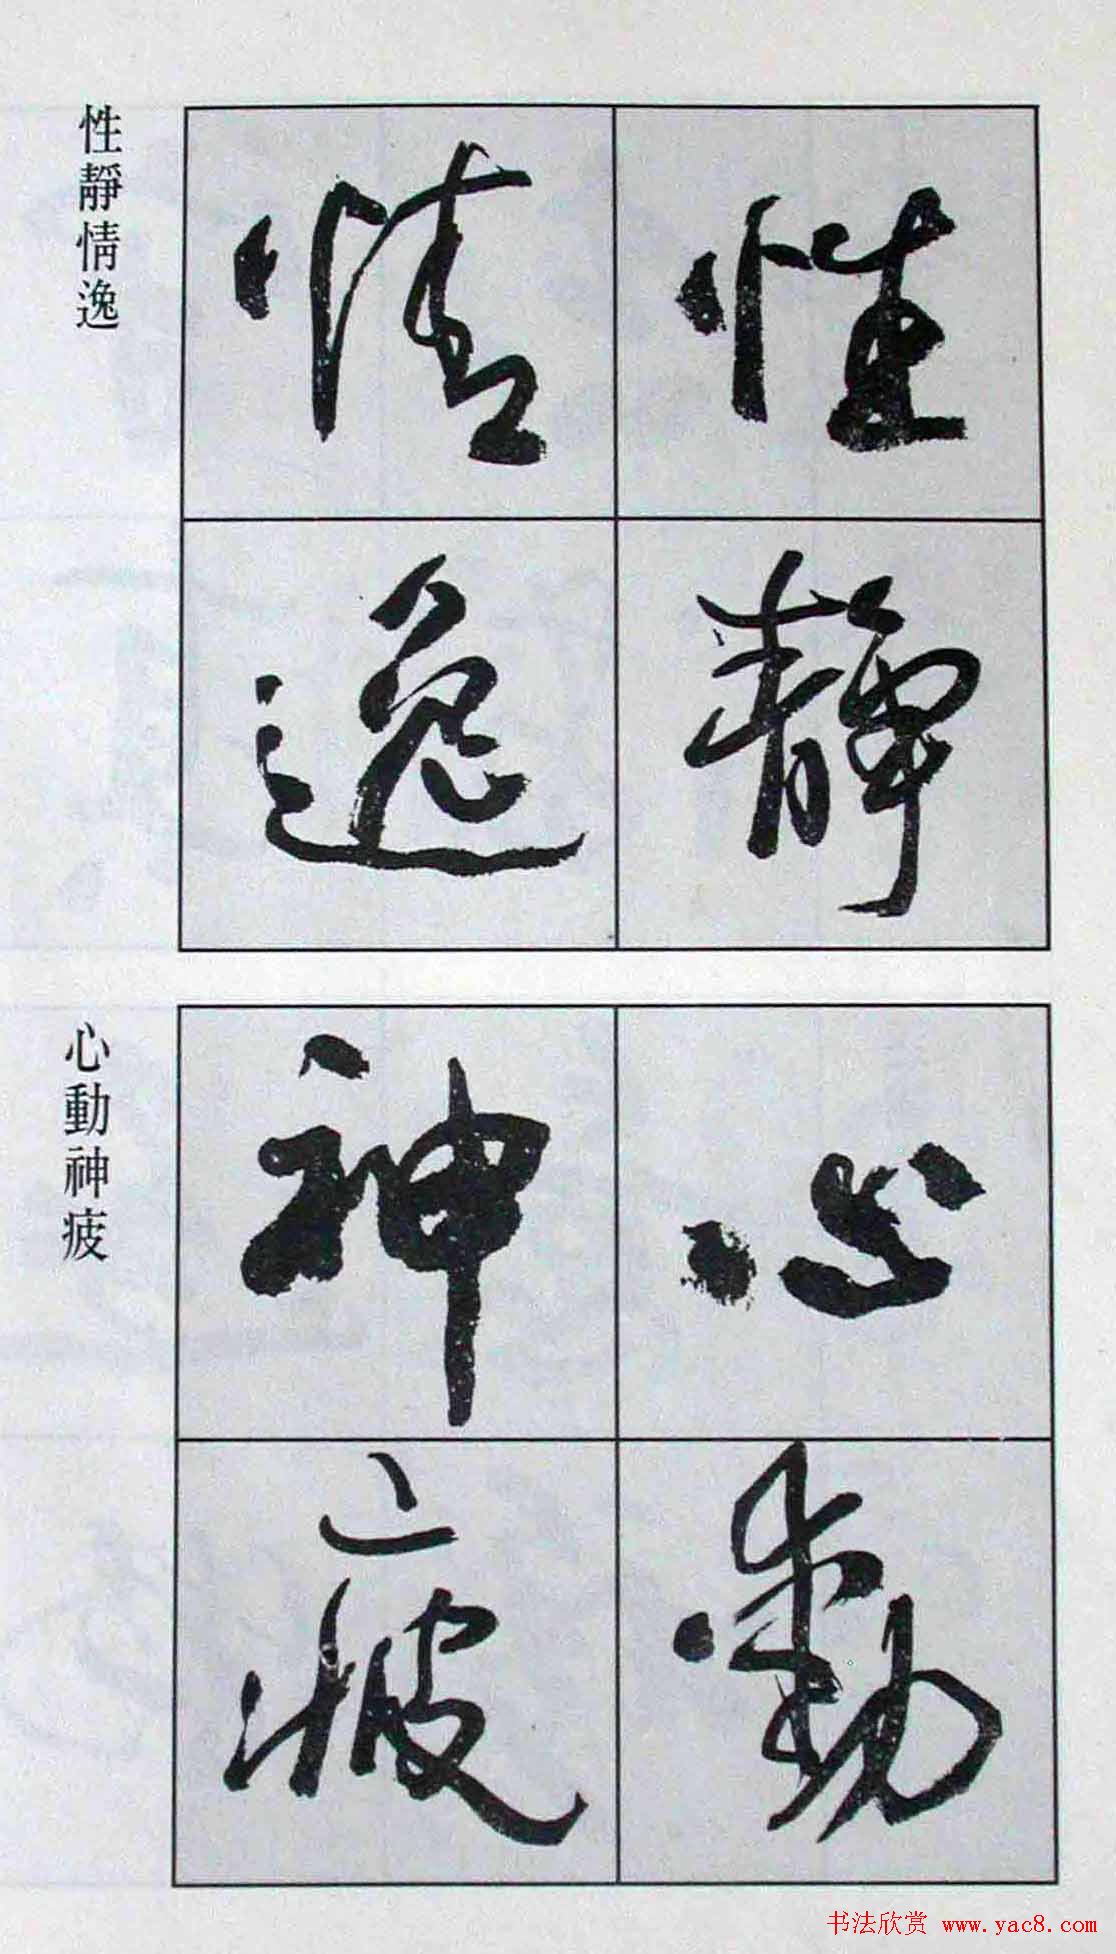 性靜情逸
性靜
情逸
心動神疲
心動
神疲
书法欣赏 www.yac8.com